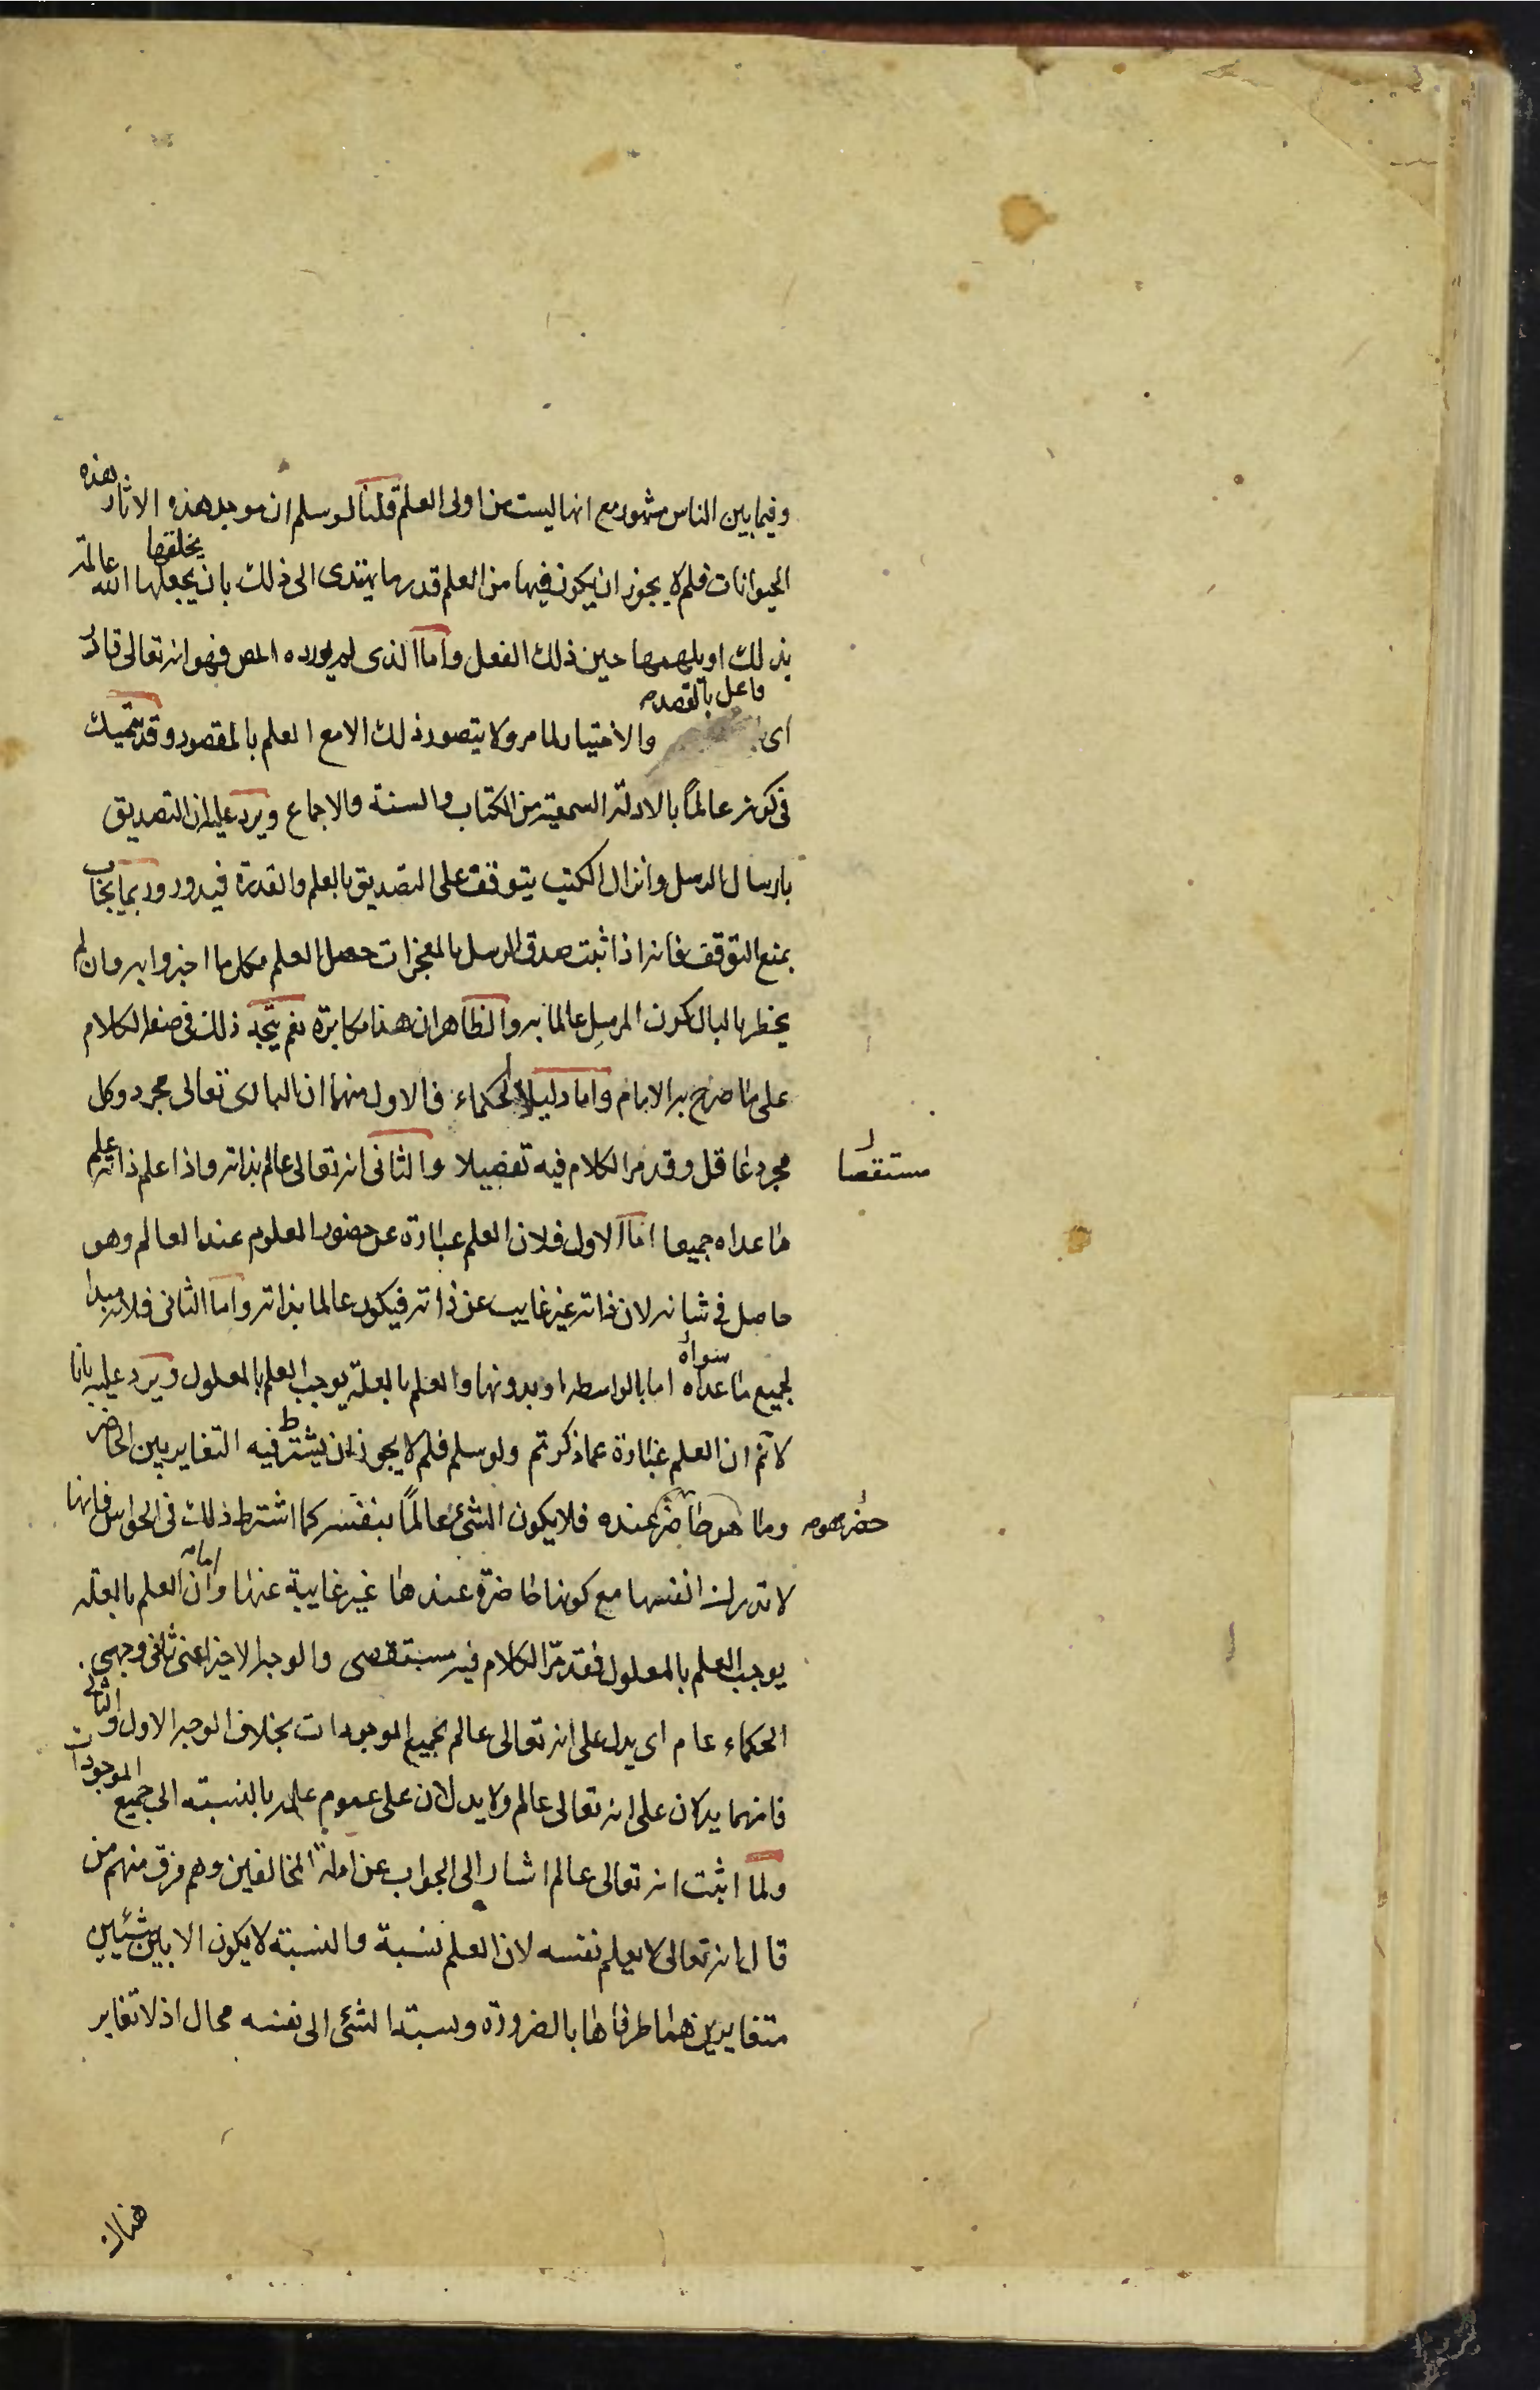 وفيما بين الناس مشهور مع انها ليست من اولى العلم قلنا لو سلم ان موجد هذه الاثار هذه
الحيوانات فلم لا يجوز ان يكون فيها من العلم قدر ما يهتدى الى ذلك بان يجعلها الله يخلقها عالمة
بذلك او يلهمها حين ذلك الفعل واما الذى لم يورده المص فهو انه تعالى قادر
اى فاعل بالقصد والاختيار لما مر ولا يتصور ذلك الا مع العلم بالمقصود وقد يتمسك
فى كونه عالماً بالادلة السمعية من الكتاب والسنة والاجماع ويرد عليه ان التصديق
بارسال الرسل وانزال الكتب يتوقف على التصديق بالعلم والقدرة فيدور وربما يجاب
بمنع التوقف فانه اذا ثبت صدق الرسل بالمعجزات حصل العلم بكل ما اخبروا به وان لم
يخطر بالبال كون المرسِل عالما به والظاهر ان هذا مكابرة نعم يتجه ذلك فى صفة الكلام
على ما صرح به الامام واما دليلا الحكماء فالاول منهما ان البارى تعالى مجرد وكل
مجرد عاقل وقد مر الكلام فيه تفصيلا والثانى انه تعالى عالم بذاته واذا علم ذاته علم
مستقصا
ما عداه جميعا اما الاول فلان العلم عبارة عن حضور المعلوم عند العالم وهو
حاصل فى شانه لان ذاته غير غايب عن ذاته فيكون عالما بذاته واما الثانى فلانه مبدا
لجميع ما عداه سواه اما بالواسطه او بدونها والعلم بالعلة يوجب العلم بالمعلول ويرد عليه بانا
لا نم ان العلم عبارة عما ذكرتم ولو سلم فلم لا يجوز ان يشترط فيه التغاير بين الحاضر
وما هو حاضر عنده فلا يكون الشئ عالماً بنفسه كما اشترط ذلك فى الحواس فانها
حضر هو
لا تدرك انفسها مع كونها حاضرة عندها غير غايبة عنها واما ان العلم بالعلة
يوجب العلم بالمعلول فقد مرّ الكلام فيه مستقصى والوجه الاخير اعنى ثانى وجهى
الحكماء عام اى يدل على انه تعالى عالم بجميع الموجودات بخلاف الوجه الاول والثانى
فانهما يدلان على انه تعالى عالم ولا يدلان على عموم علمه بالنسبة الى جميع الموجودات
ولما اثبت انه تعالى عالم اشار الى الجواب عن ادلة المخالفين وهم فرق منهم من
قال انه تعالى لا يعلم نفسه لان العلم نسبة والنسبة لا يكون الا بين شيئين
متغايرين هما طرفاها بالضرورة ونسبة الشئ الى نفسه محال اذ لا تغاير
هناك